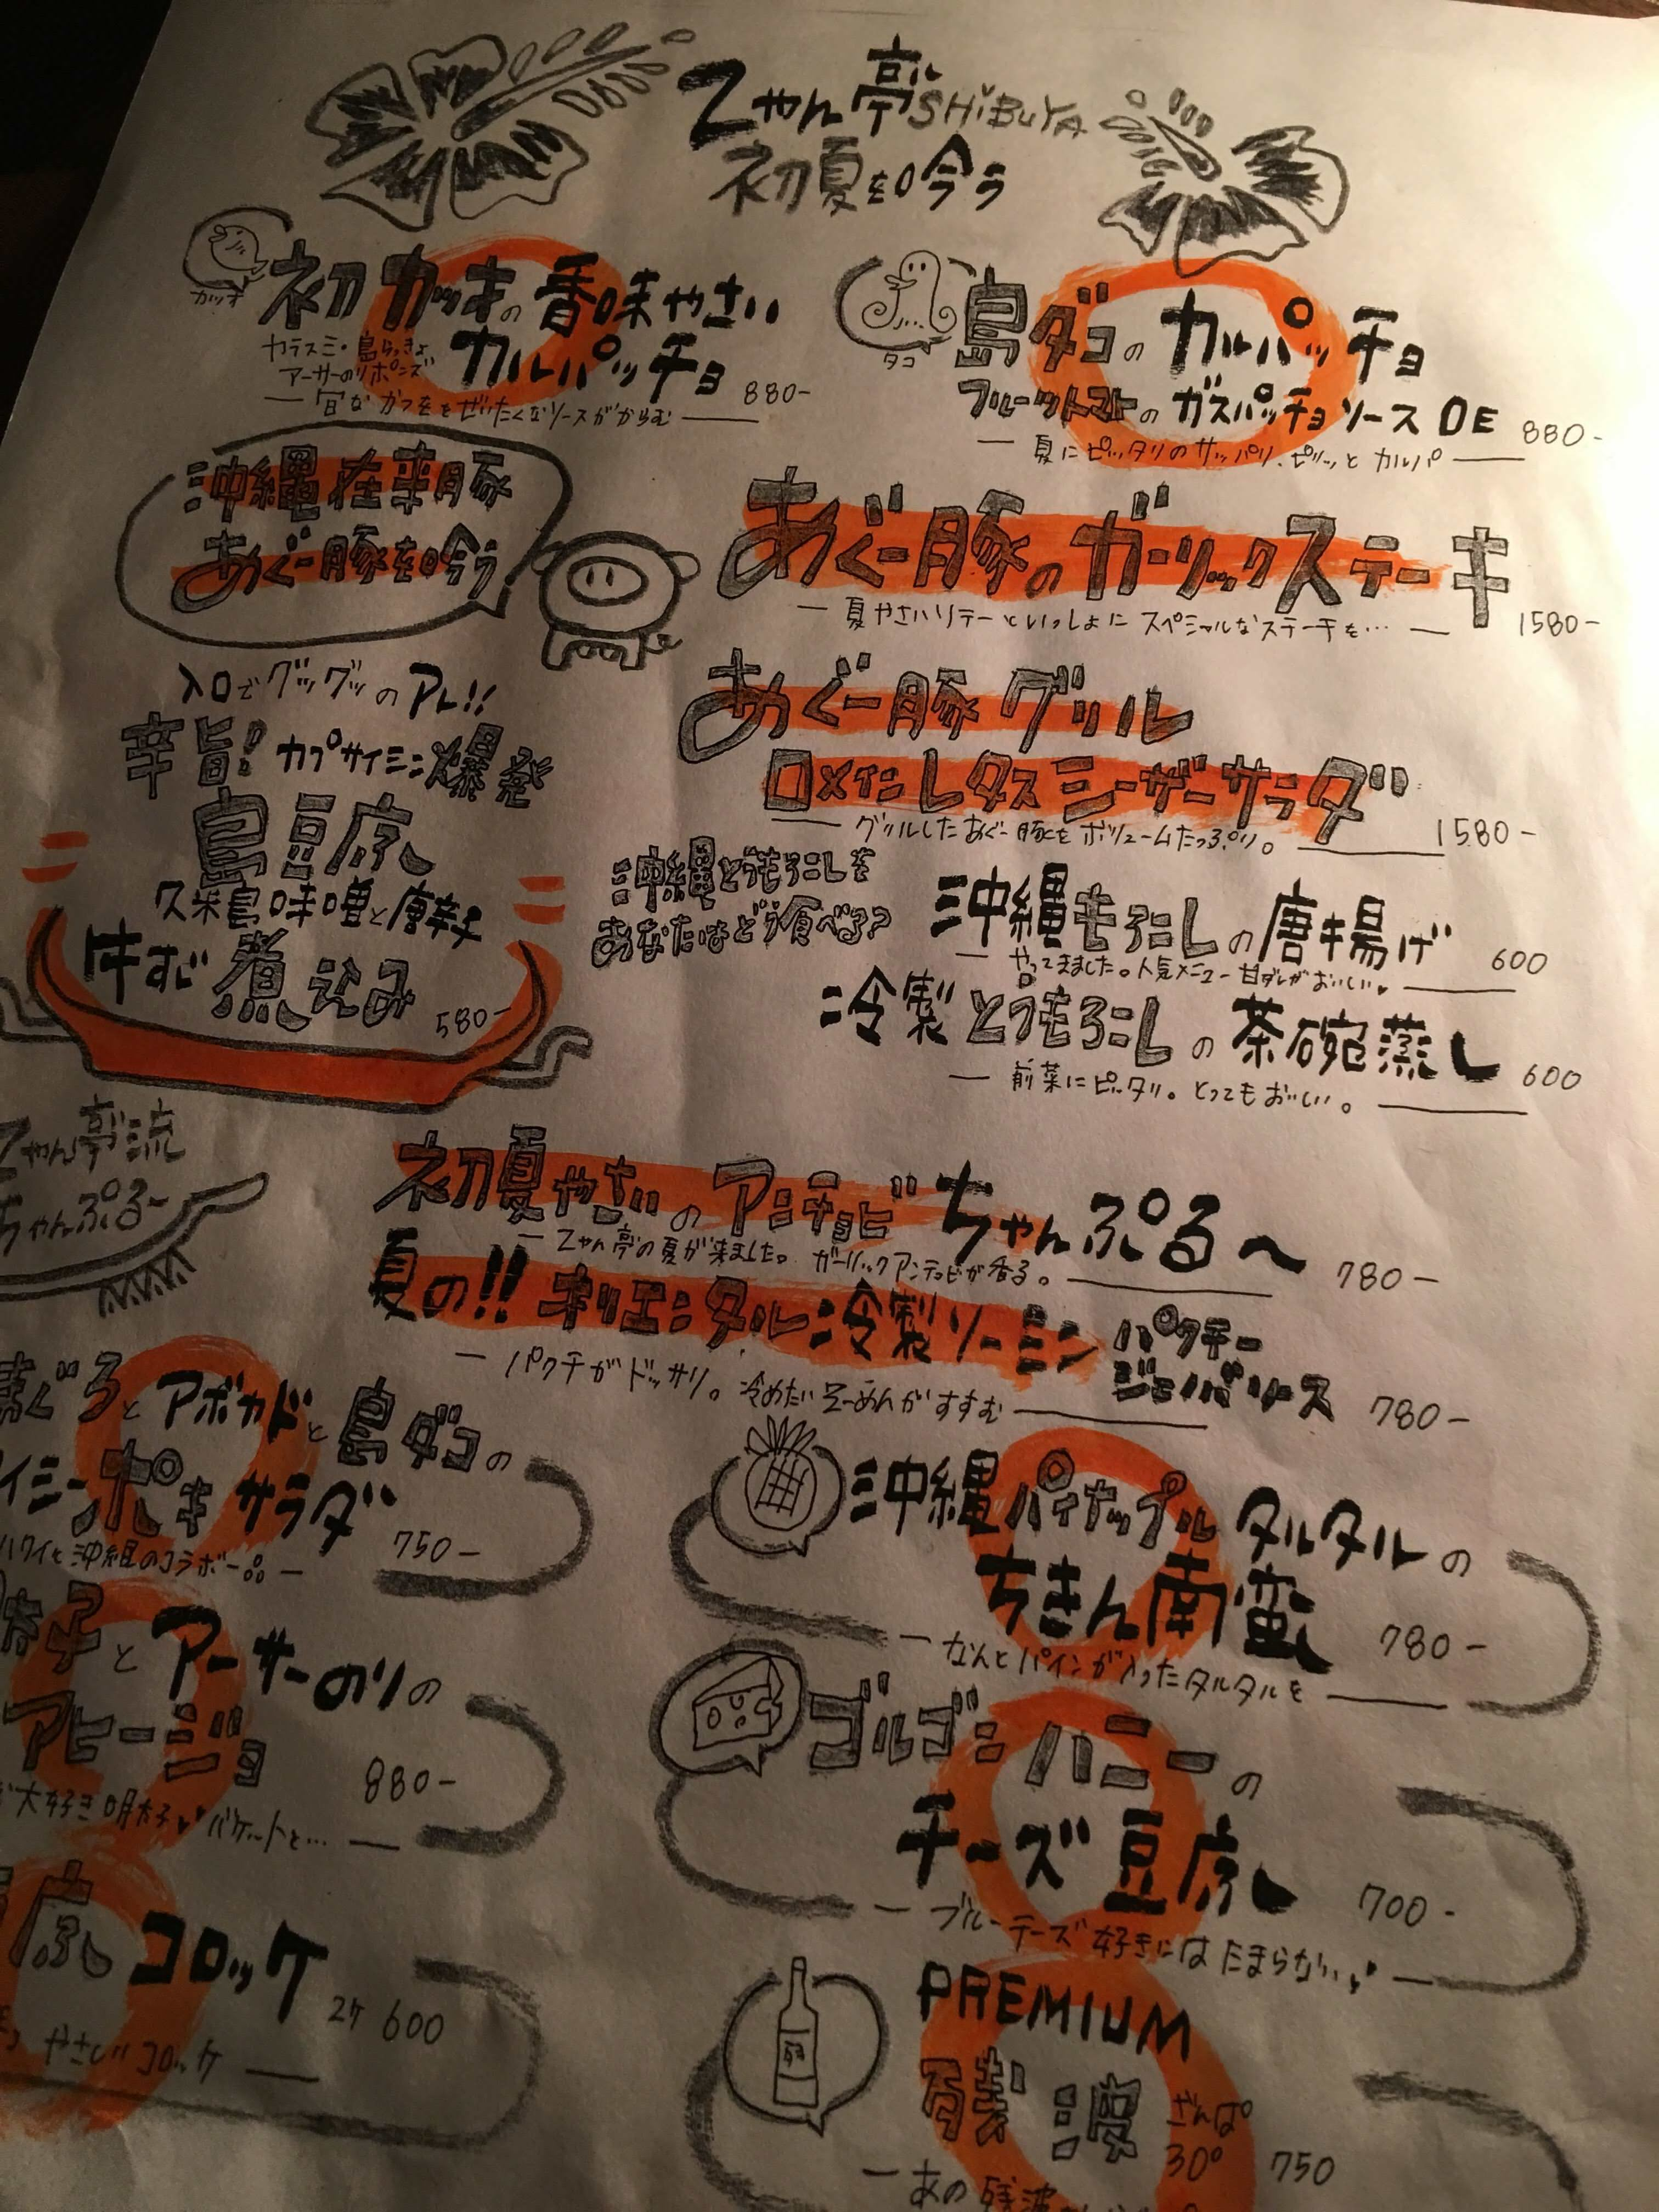 乙やん亭 SHiBUYA
初夏を喰う
カツオ
初ガツオの香味やさい
カルパッチョ 880-
カラスミ・島らっきょ
アーサーのりポンズ
旬なカツオをぜいたくなソースがからむ
タコ
島ダコのカルパッチョ
フルーツトマトのガスパッチョソース DE 880-
夏にピッタリのサッパリ、ピリッとカルパ
沖縄在来豚
あぐー豚を喰う
あぐー豚のガーリックステーキ
夏やさいソテーといっしょにスペシャルなステーキを… 1580-
あぐー豚グリル
ロメインレタスシーザーサラダ
グリルしたあぐー豚をボリュームたっぷり。 1580-
入口でグツグツのアレ!!
辛旨! カプサイシン爆発
島豆腐
久米島味噌と唐辛子
牛すじ煮込み 580-
沖縄とうもろこしを
あなたはどう食べる?
沖縄もろこしの唐揚げ 600
やってきました。人気メニュー甘ダレがおいしい
冷製とうもろこしの茶碗蒸し 600
前菜にピッタリ。とってもおいしい。
乙やん亭流
ちゃんぷる〜
初夏やさいのアンチョビちゃんぷる〜 780-
乙やん亭の夏が来ました。ガーリックアンチョビが香る。
夏の!! オリエンタル冷製ソーミン パクチー
ジェノバソース 780-
パクチがドッサリ。冷めたいそーめんがすすむ
まぐろとアボカドと島ダコの
イシーポキサラダ 750-
ハワイと沖縄のコラボ一品
太子とアーサーのりの
アヒージョ 880-
大好き明太子 バケットと…
腐コロッケ 2ケ 600
やさしいコロッケ
沖縄パイナップルタルタルの
ちきん南蛮 780-
なんとパインが入ったタルタルを
ゴルゴンハニーの
チーズ豆腐 700-
ブルーチーズ好きにはたまらない
残
PREMIUM
残波 ざんぱ
30° 750
あの残波